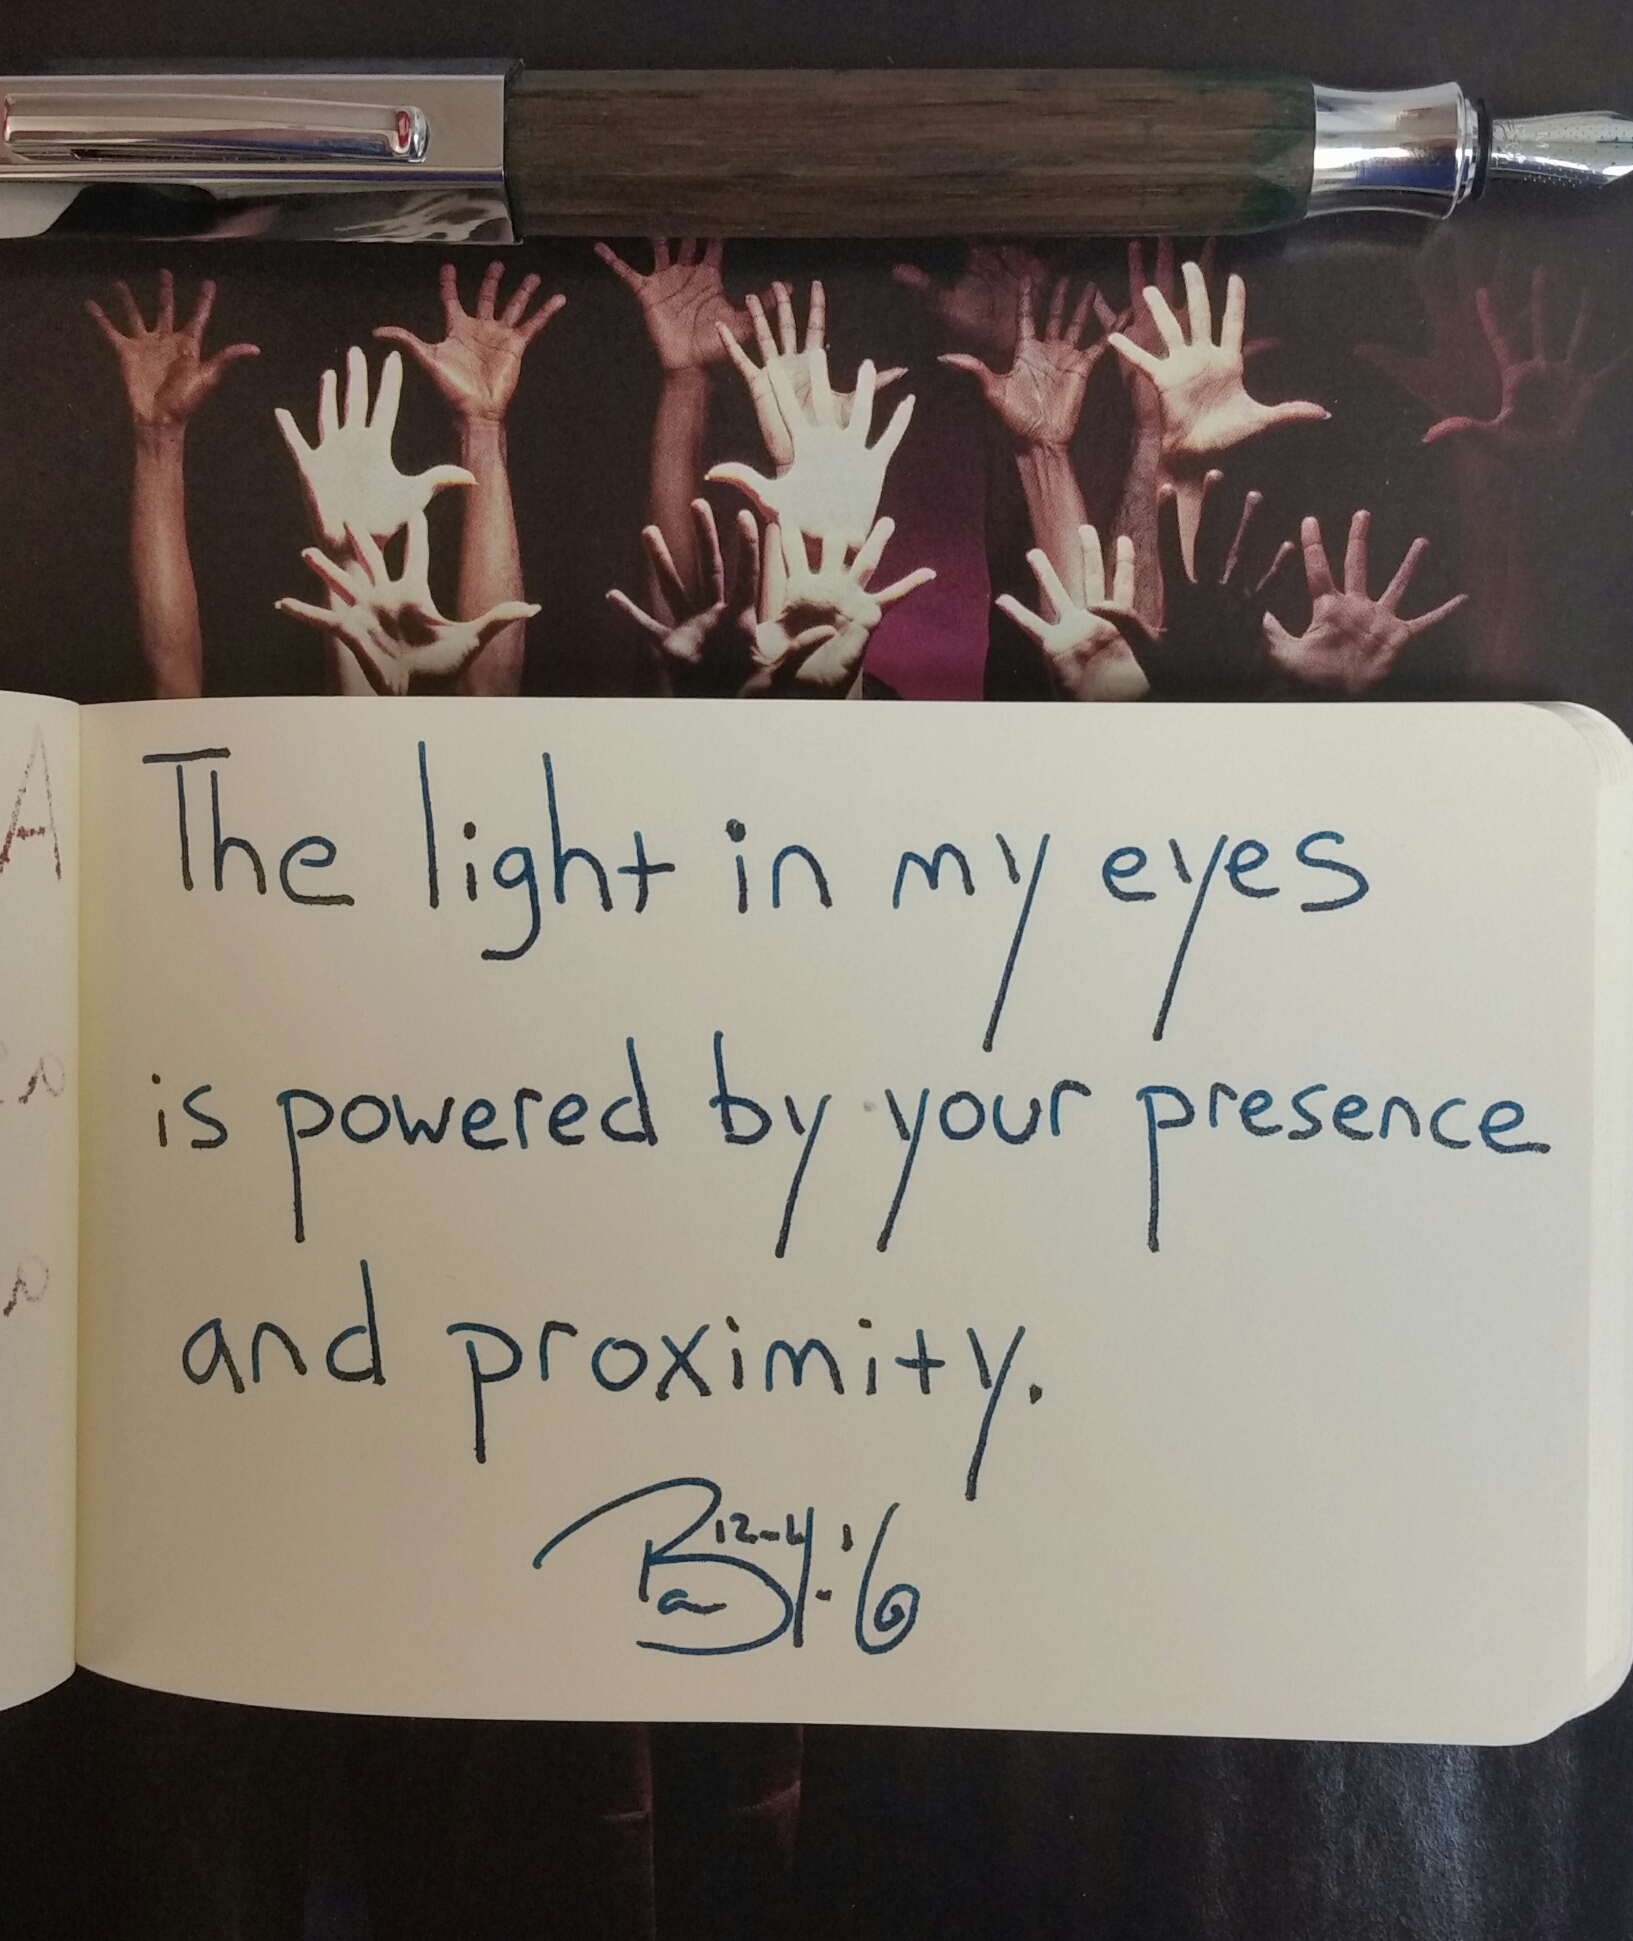 The light in my eyes
is powered by your presence
and proximity.
12-4
A